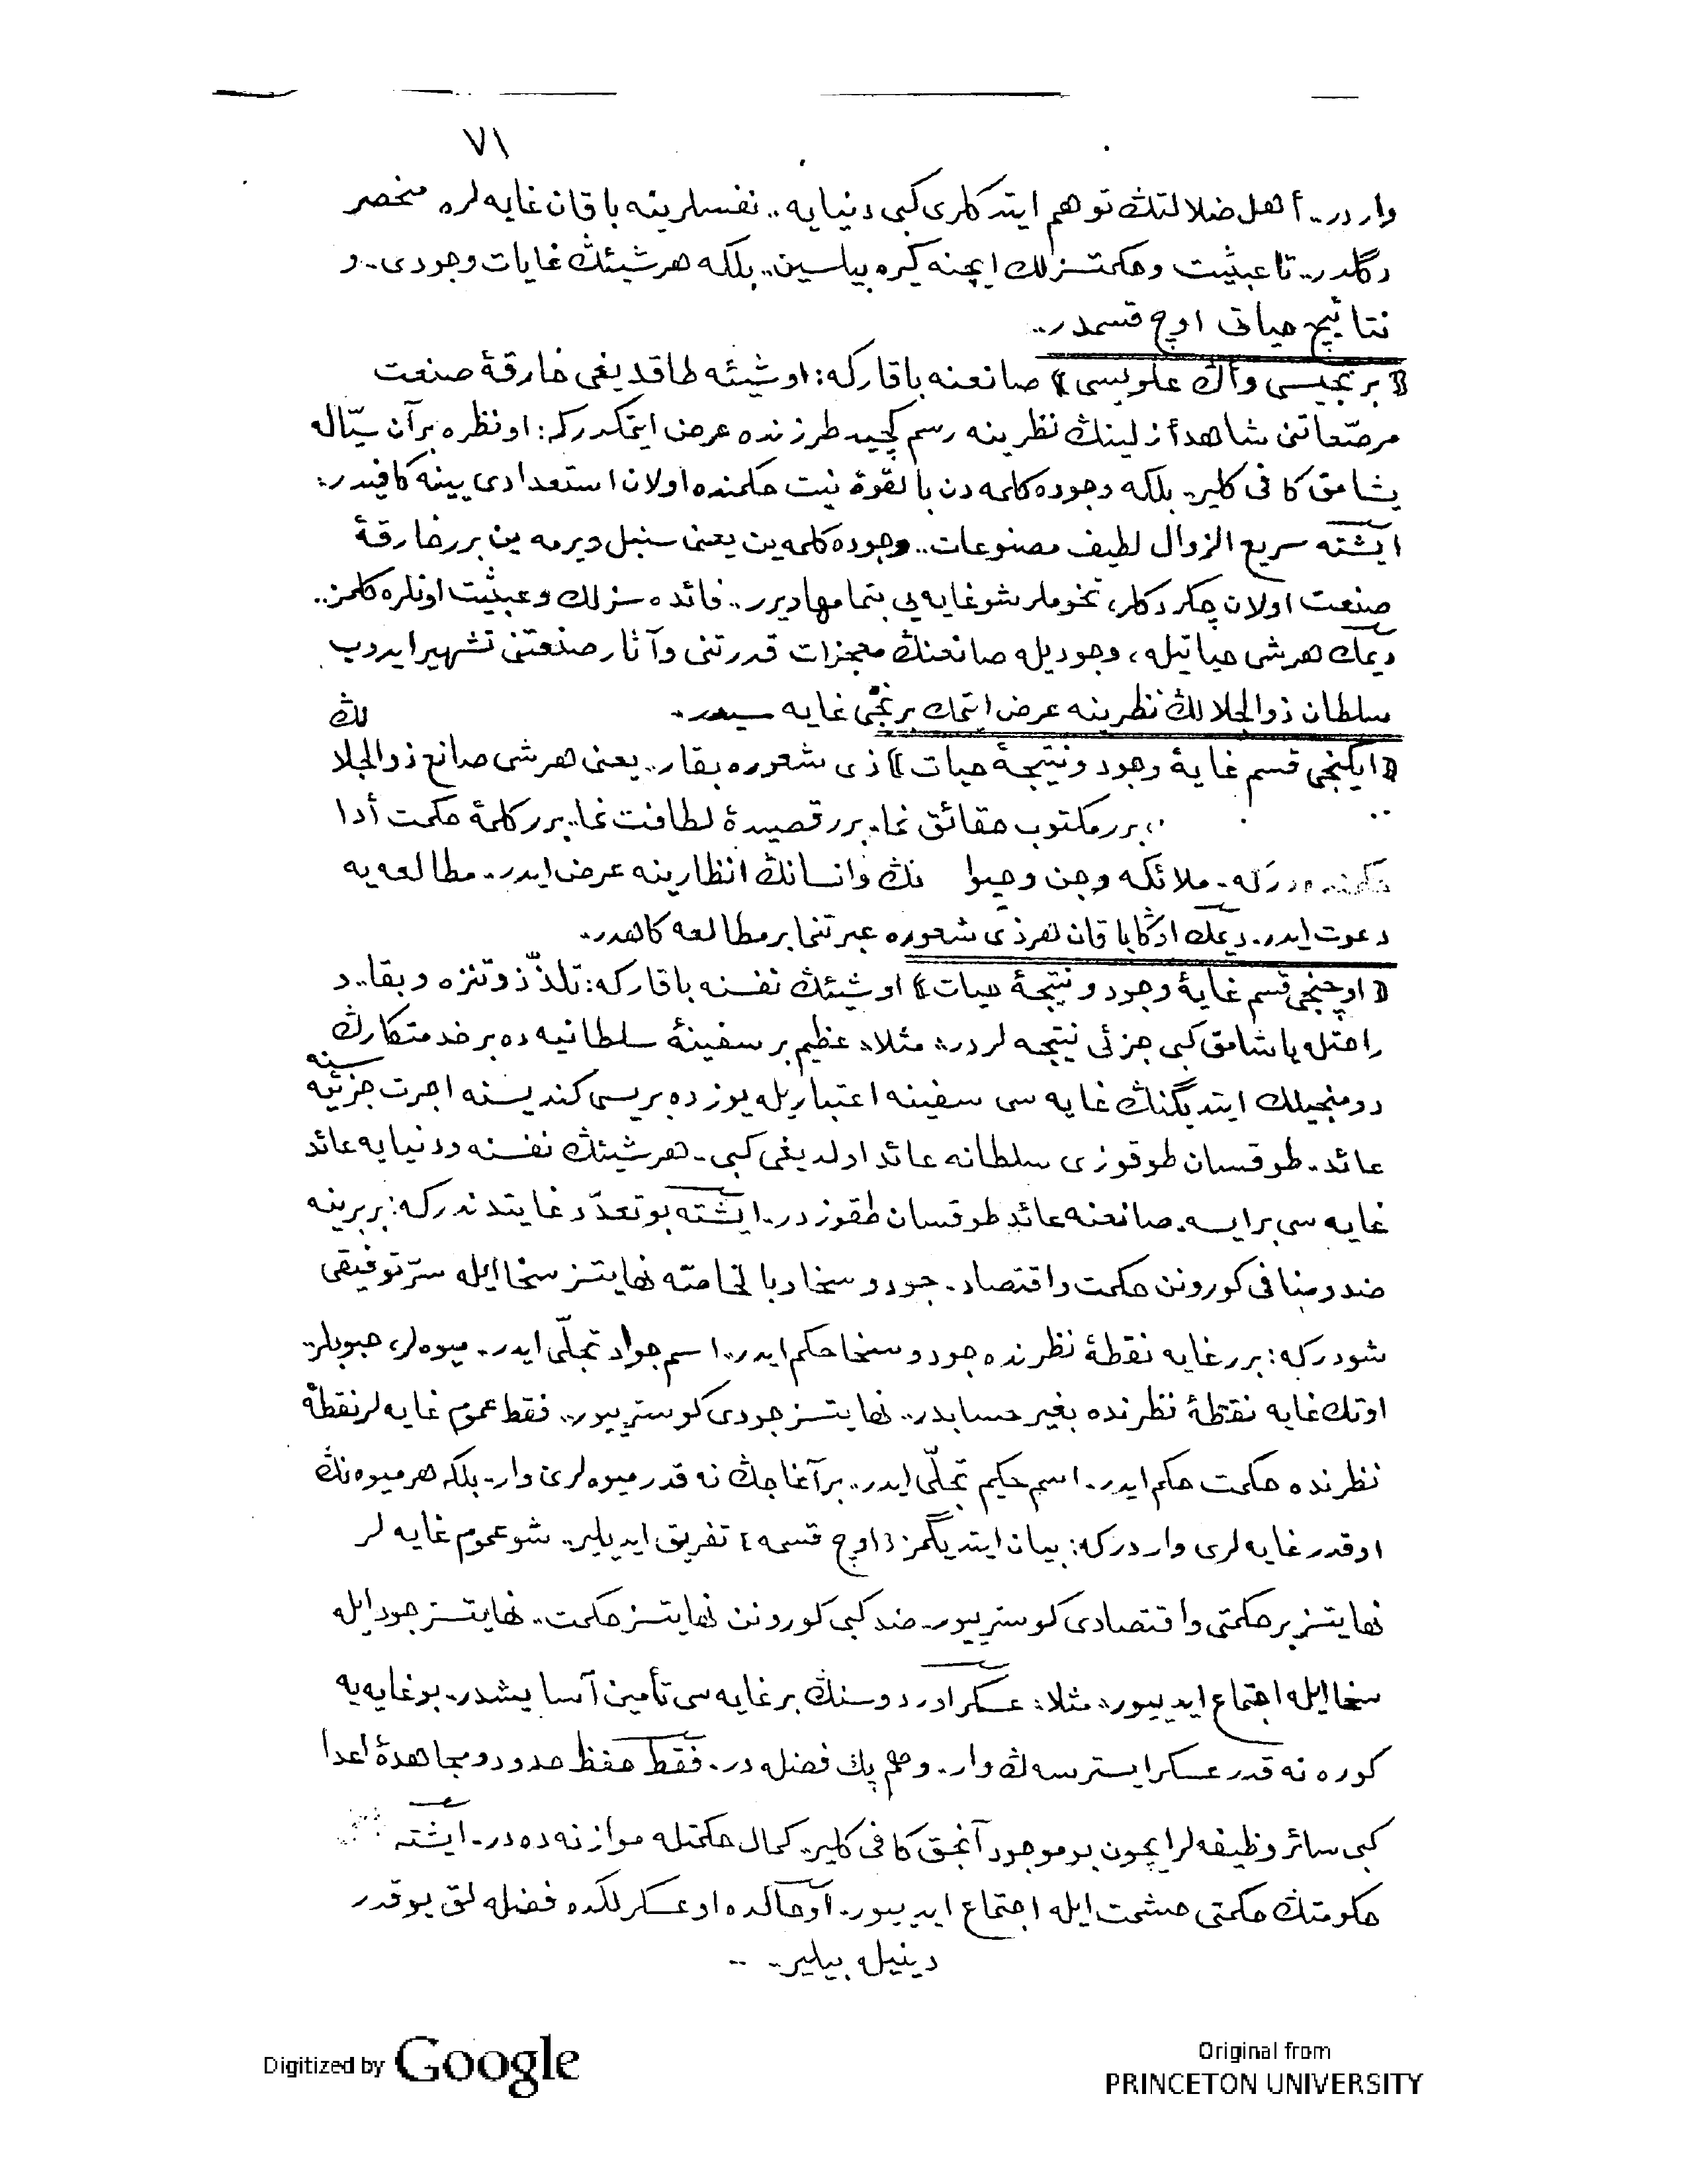 ٧١
واردر.. أهل ضلالتڭ توهم ايتدكلرى كبى دنيايه.. نفسلرينه باقان غايه لره منحصر
دگلدر.. تا عبثيت وحكمتسزلك ايچنه گيره بيلسين.. بلكه هر شيئڭ غايات وجودى.. و
نتائج حياتى اوچ قسمدر..
﴿برنجيسى وأڭ علويسى﴾ صانعنه باقاركه: او شيئه طاقديغى خارقۀ صنعت
مرصّعاتنى شاهد أزلينڭ نظرينه رسم گچيد طرزنده عرض ايتمكدركه: او نظره بر آن سيّاله
يشامق كافى گلير.. بلكه وجوده گلمه دن بالقوة نيت حكمنده اولان استعدادى يينه كافيدر:
ايشته سريع الزوال لطيف مصنوعات.. وجوده گلمه ين يعنى سنبل ويرمه ين برر خارقۀ
صنعت اولان چكردكلر، تخوملر شو غايه يى بتمامها ويرر.. فائده سزلك وعبثيت اونلره گلمز..
ديمك هر شى حياتيله، وجوديله صانعنڭ معجزات قدرتنى وآثار صنعتنى تشهير ايدوب
سلطان ذوالجلالڭ نظرينه عرض ايتمك برنجى غايه سيدر..
لڭ
﴿ايكنجى قسم غايۀ وجود ونتيجۀ حيات﴾ ذى شعوره بقار.. يعنى هر شى صانع ذوالجلا
برر مكتوب حقائق نما، برر قصيدۀ لطافت نما.. برر كلمۀ حكمت أدا
حكمنده دركه.. ملائكه وجن وحيوا نڭ وانسانڭ انظارينه عرض ايدر.. مطالعه يه
دعوت ايدر.. ديمك اوڭا باقان هر ذى شعوره عبرتنما بر مطالعه گاهدر..
﴿اوچنجى قسم غايۀ وجود ونتيجۀ حيات﴾ او شيئڭ نفسنه باقاركه: تلذّذ وتنزه وبقا.. و
راحتله ياشامق كبى جزئى نتيجه لردر: مثلا: عظيم بر سفينۀ سلطانيه ده بر خدمتكارڭ
دومنجيلك ايتديگنڭ غايه سى سفينه اعتباريله يوزده بريسى كنديسنه اجرت جزئيه سنه
عائد.. طوقسان طوقوزى سلطانه عائد اولديغى كبى.. هر شيئڭ نفسنه ودنيايه عائد
غايه سى بر ايسه.. صانعنه عائد طوقسان طقوزدر.. ايشته بو تعدّد غايتدندركه: بربرينه
ضد ومنافى گورونن حكمت واقتصاد.. جود وسخا وبالخاصّه نهايتسز سخا ايله سرّ توفيقى
شودركه: برر غايه نقطۀ نظرنده جود وسخا حكم ايدر.. اسم جواد تجلّى ايدر.. ميوه لر، حبوبلر..
اوتك غايه نقطۀ نظرنده بغير حسابدر.. نهايتسز جودى گوستريیور.. فقط عموم غايه لر نقطۀ
نظرنده حكمت حكم ايدر.. اسم حكيم تجلّى ايدر.. بر آغاجڭ نه قدر ميوه لرى وار.. بلكه هر ميوه نڭ
اوقدر غايه لرى واردركه: بيان ايتديگمز (اوچ قسمه) تفريق ايديلير.. شو عموم غايه لر
نهايتسز بر حكمتى واقتصادى گوستريیور.. ضد كبى گورونن نهايتسز حكمت.. نهايتسز جود ايله
سخا ايله اجتماع ايدييور: مثلا: عسكر اوردوسنڭ بر غايه سى تأمين آسايشدر.. بو غايه يه
گوره نه قدر عسكر ايسترسه ڭ وار.. وهم پك فضله در.. فقط حفظ حدود ومجاهدۀ اعدا
كبى سائر وظيفه لر ايچون بو موجود آنجق كافى گلير.. كمال حكمتله موازنه ده در.. ايشته
حكومتڭ حكمتى حشمت ايله اجتماع ايدييور.. او حالده او عسكرلكده فضله لق يوقدر
دينيله بيلير..
Digitized by Google
Original from
PRINCETON UNIVERSITY